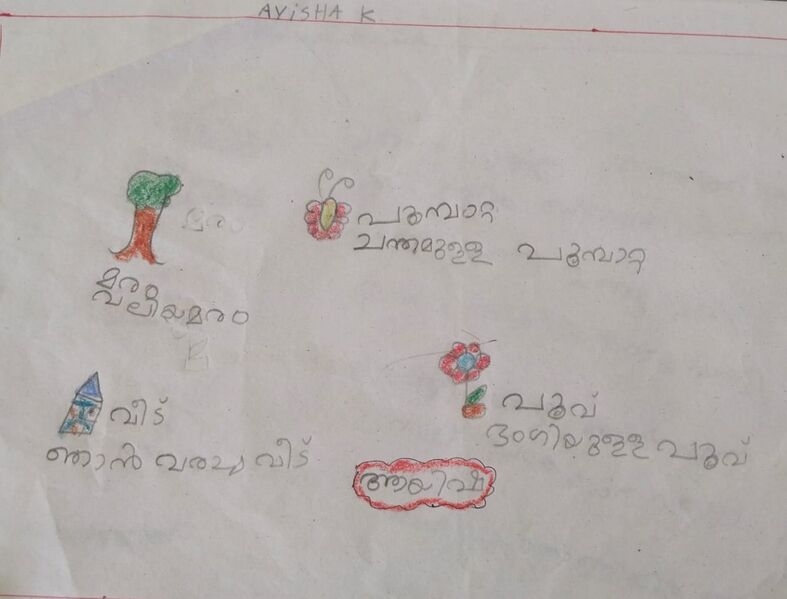 AYiSHA K
മരം
വലിയമരം
പൂമ്പാറ്റ
ചന്തമുള്ള പൂമ്പാറ്റ
വീട്
ഞാൻ വരച്ച വീട്
പൂവ്
ഭംഗിയുള്ള പൂവ്
ആയിഷ